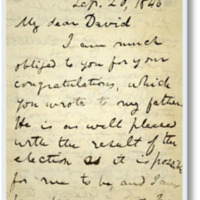 Sep. 20, 1846
My dear David
I am much
obliged to you for your
congratulations, which
you wrote to my father
He is as well pleased
with the result of the
election as it is possible
for me to be and I am